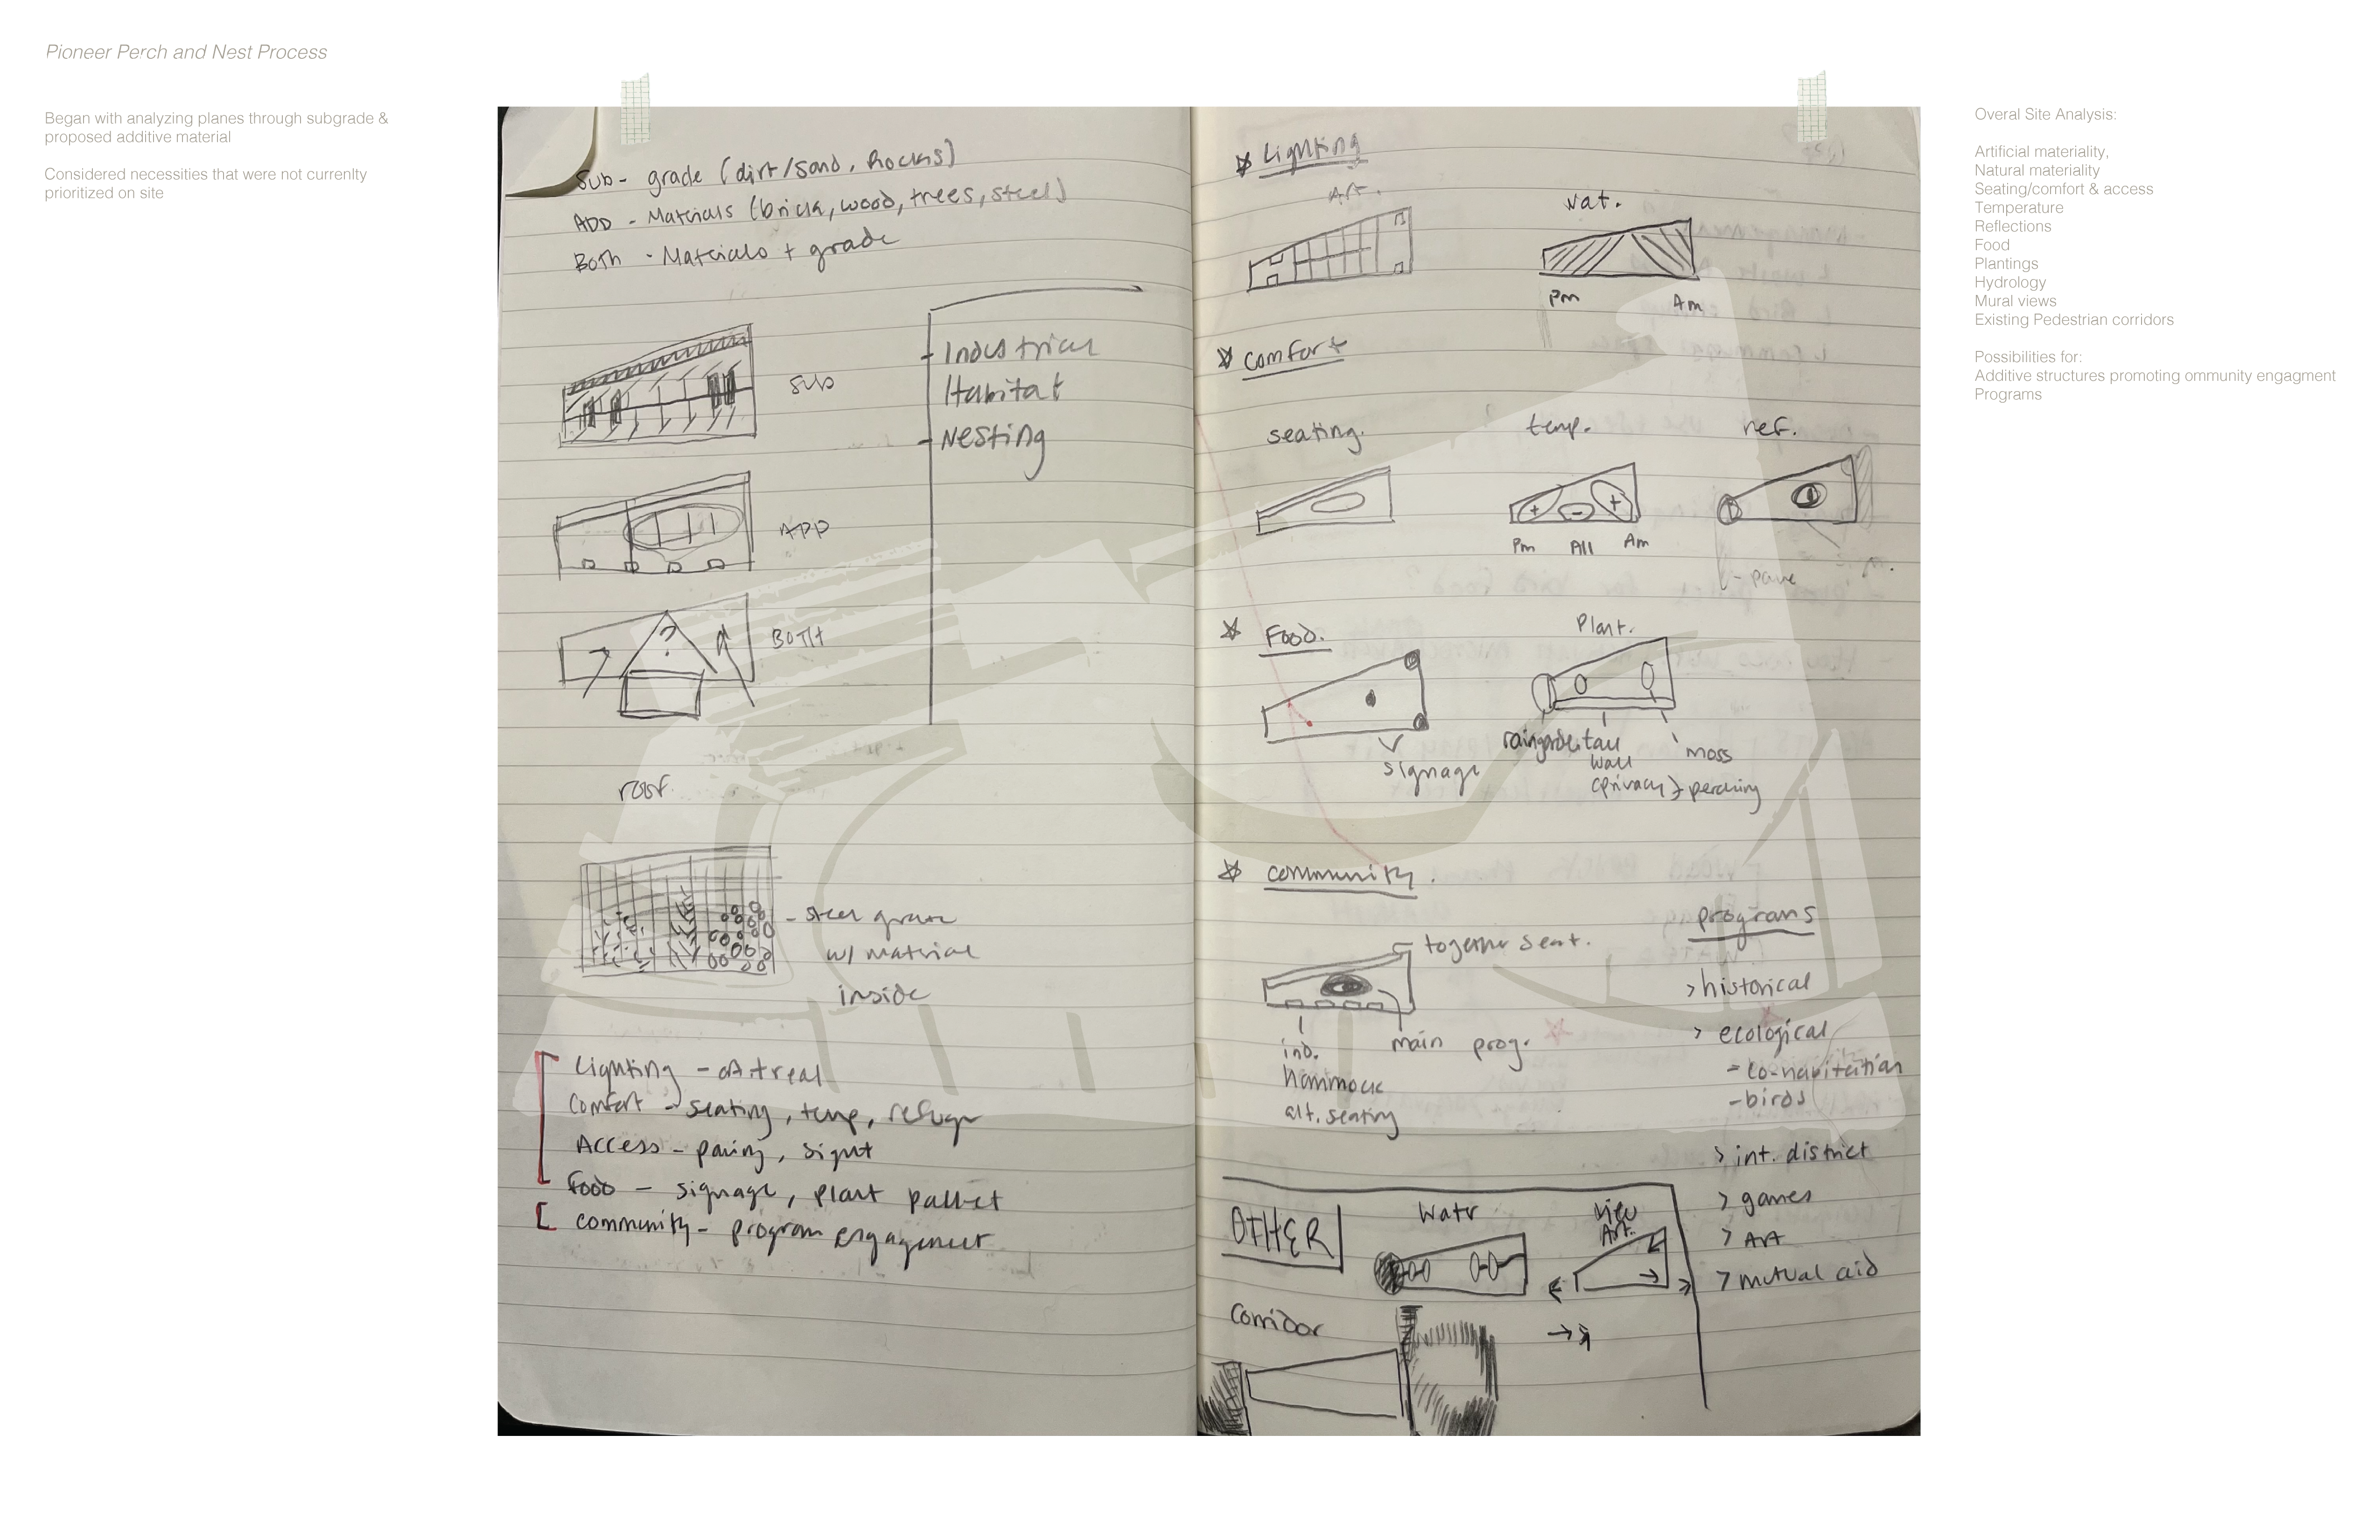 Pioneer Perch and Nest Process
Began with analyzing planes through subgrade &
proposed additive material
Considered necessities that were not currenlty
prioritized on site
Sub - grade (dirt/sand, Rocks)
ADD - Materials (brick, wood, trees, steel)
Both - Materials + grade
Sub
Industrial
Habitat
Nesting
APP
BOTH
roof.
- steel grate
w/ material
inside
Lighting - art real
Comfort - seating, temp, refuge
Access - paving, sight
Food - signage, plant pallet
community - program engagement
Lighting
Art.
nat.
Pm
Am
comfort
seating.
temp.
ref.
Pm
All
Am
- pave
Food.
Plant.
signage
raingarden
tall
wall
(privacy)
moss
+ perching
community.
together seat.
ind.
hammock
alt. seating
main prog.
programs
> historical
> ecological
- co-habitation
- birds
> int. district
> games
> Art
> mutual aid
OTHER
Water
View
Art.
Corridor
Overal Site Analysis:
Artificial materiality,
Natural materiality
Seating/comfort & access
Temperature
Reflections
Food
Plantings
Hydrology
Mural views
Existing Pedestrian corridors
Possibilities for:
Additive structures promoting ommunity engagment
Programs